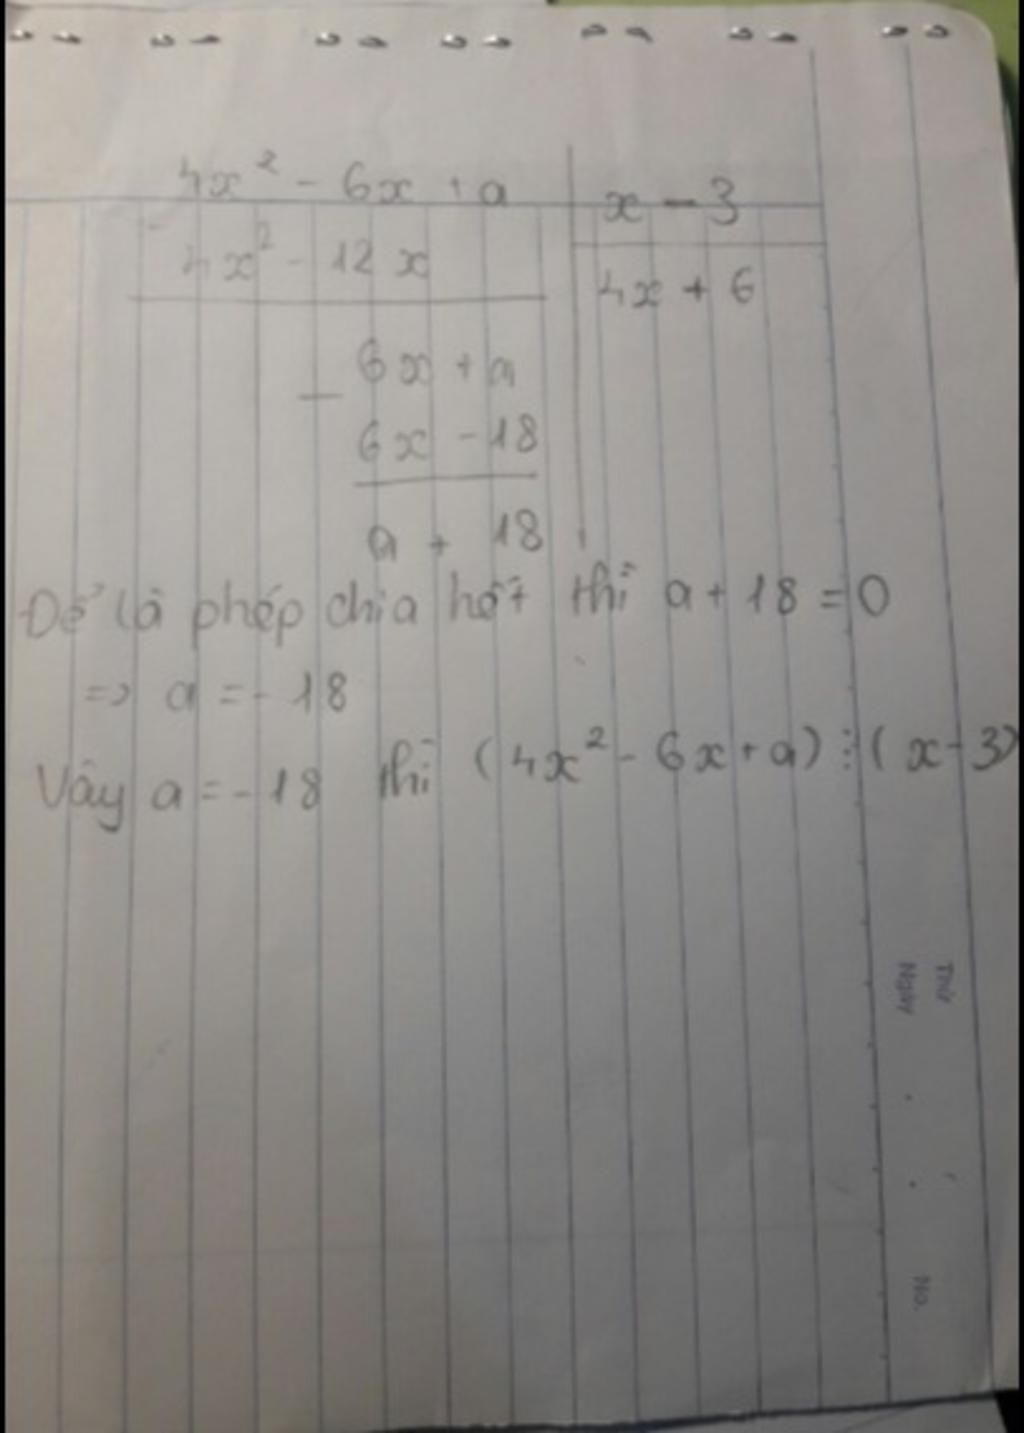 4x² - 6x + a | x - 3
4x² - 12x | 4x + 6
6x + a
−
6x - 18
a + 18
Để là phép chia hết thì a + 18 = 0
=> a = - 18
Vậy a = - 18 thì (4x² - 6x + a) ⋮ (x - 3)
Thứ
Ngày
No.